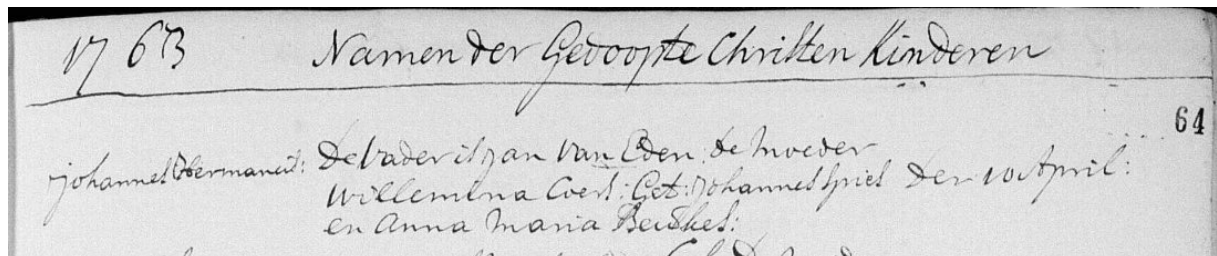 1763 Namen der Gedoopte Christen Kinderen
64
Johannes Hermanus: De Vader is Jan Van Eden, de Moeder
Willemina Coers: Get: Johannes Spies Der 10 April:
en Anna Maria